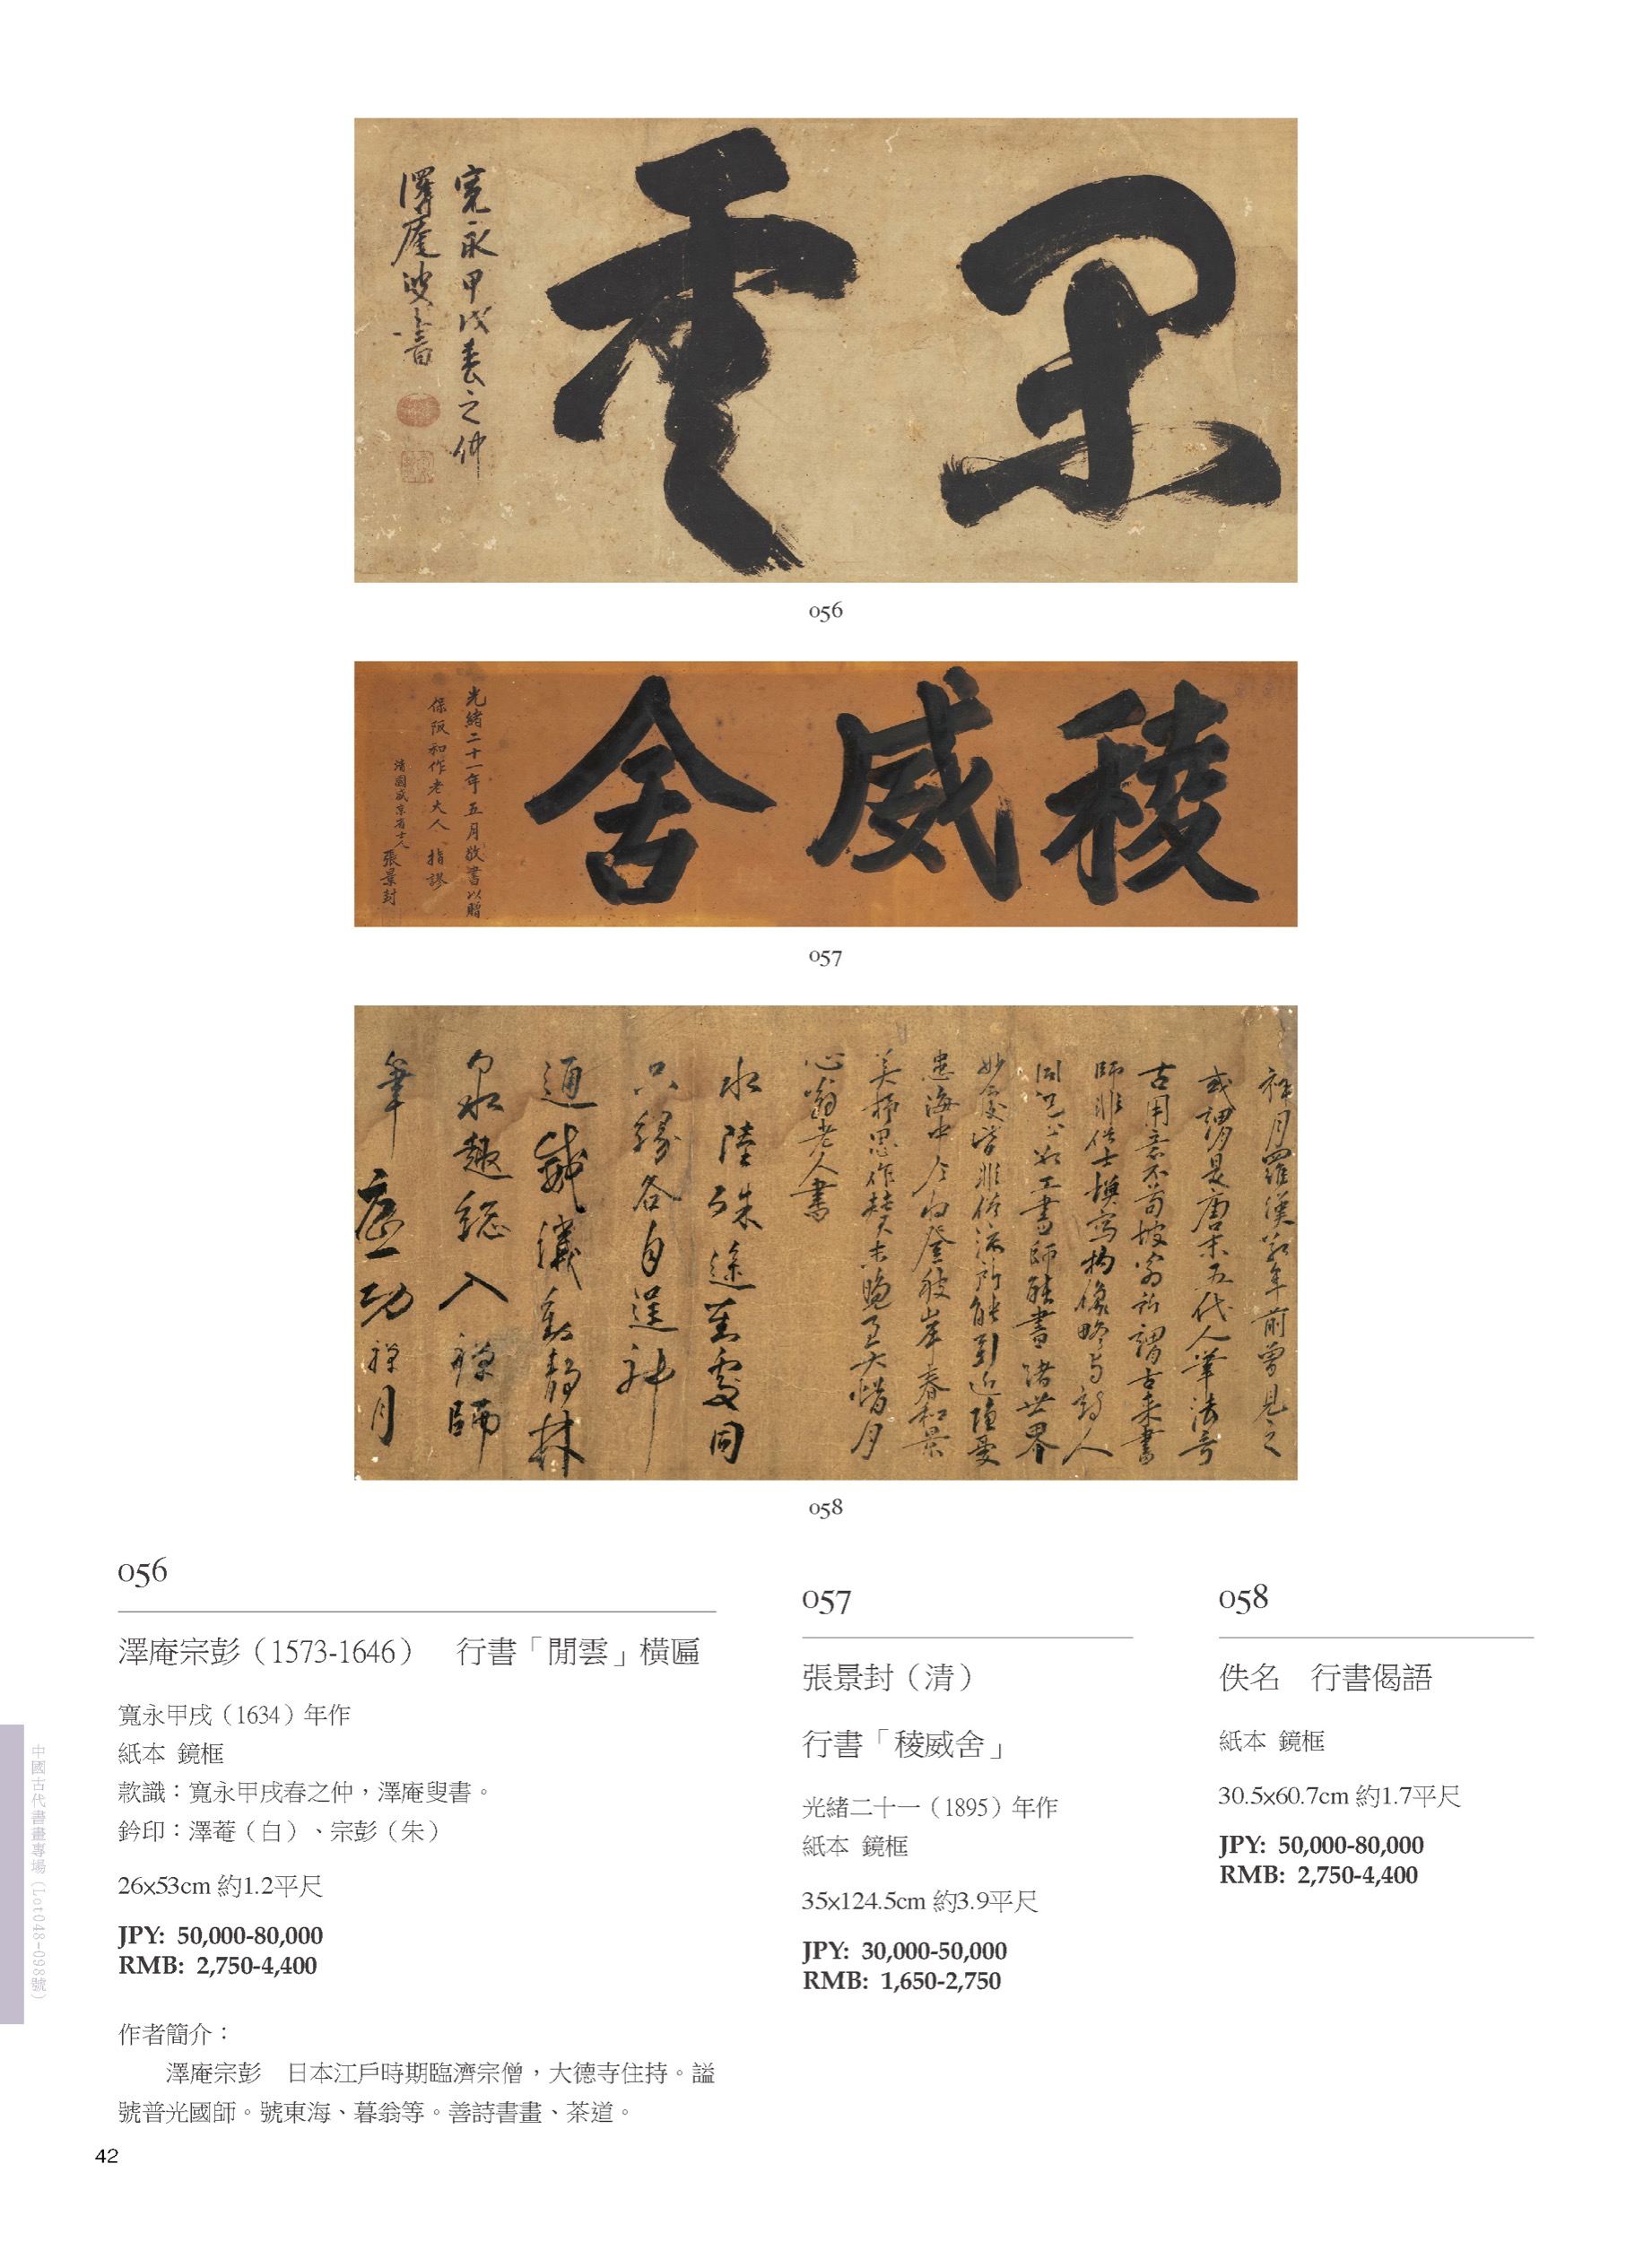 閒雲
寬永甲戌春之仲
澤庵叟書
056
稜威舍
光緒二十一年五月敬書以贈
保阪和作老大人指謬
清國盛京省士人張景封
057
禪月羅漢
或謂是唐末五代人筆法奇
古用意不苟坡翁所謂古來畫
師非俗士摸寫物像略與詩人
同
心翁老人書
水陸殊途
只緣各自逞神
通
泉趣総入禪師
筆 應一功禪月
058
056
澤庵宗彭（1573-1646） 行書「閒雲」橫匾
寬永甲戌（1634）年作
紙本 鏡框
款識：寬永甲戌春之仲，澤庵叟書。
鈐印：澤菴（白）、宗彭（朱）
26x53cm 約1.2平尺
JPY: 50,000-80,000
RMB: 2,750-4,400
作者簡介：
澤庵宗彭 日本江戶時期臨濟宗僧，大德寺住持。謚
號普光國師。號東海、暮翁等。善詩書畫、茶道。
057
張景封（清）
行書「稜威舍」
光緒二十一（1895）年作
紙本 鏡框
35x124.5cm 約3.9平尺
JPY: 30,000-50,000
RMB: 1,650-2,750
058
佚名 行書偈語
紙本 鏡框
30.5x60.7cm 約1.7平尺
JPY: 50,000-80,000
RMB: 2,750-4,400
中國古代書畫專場（Lot048-098號）
42